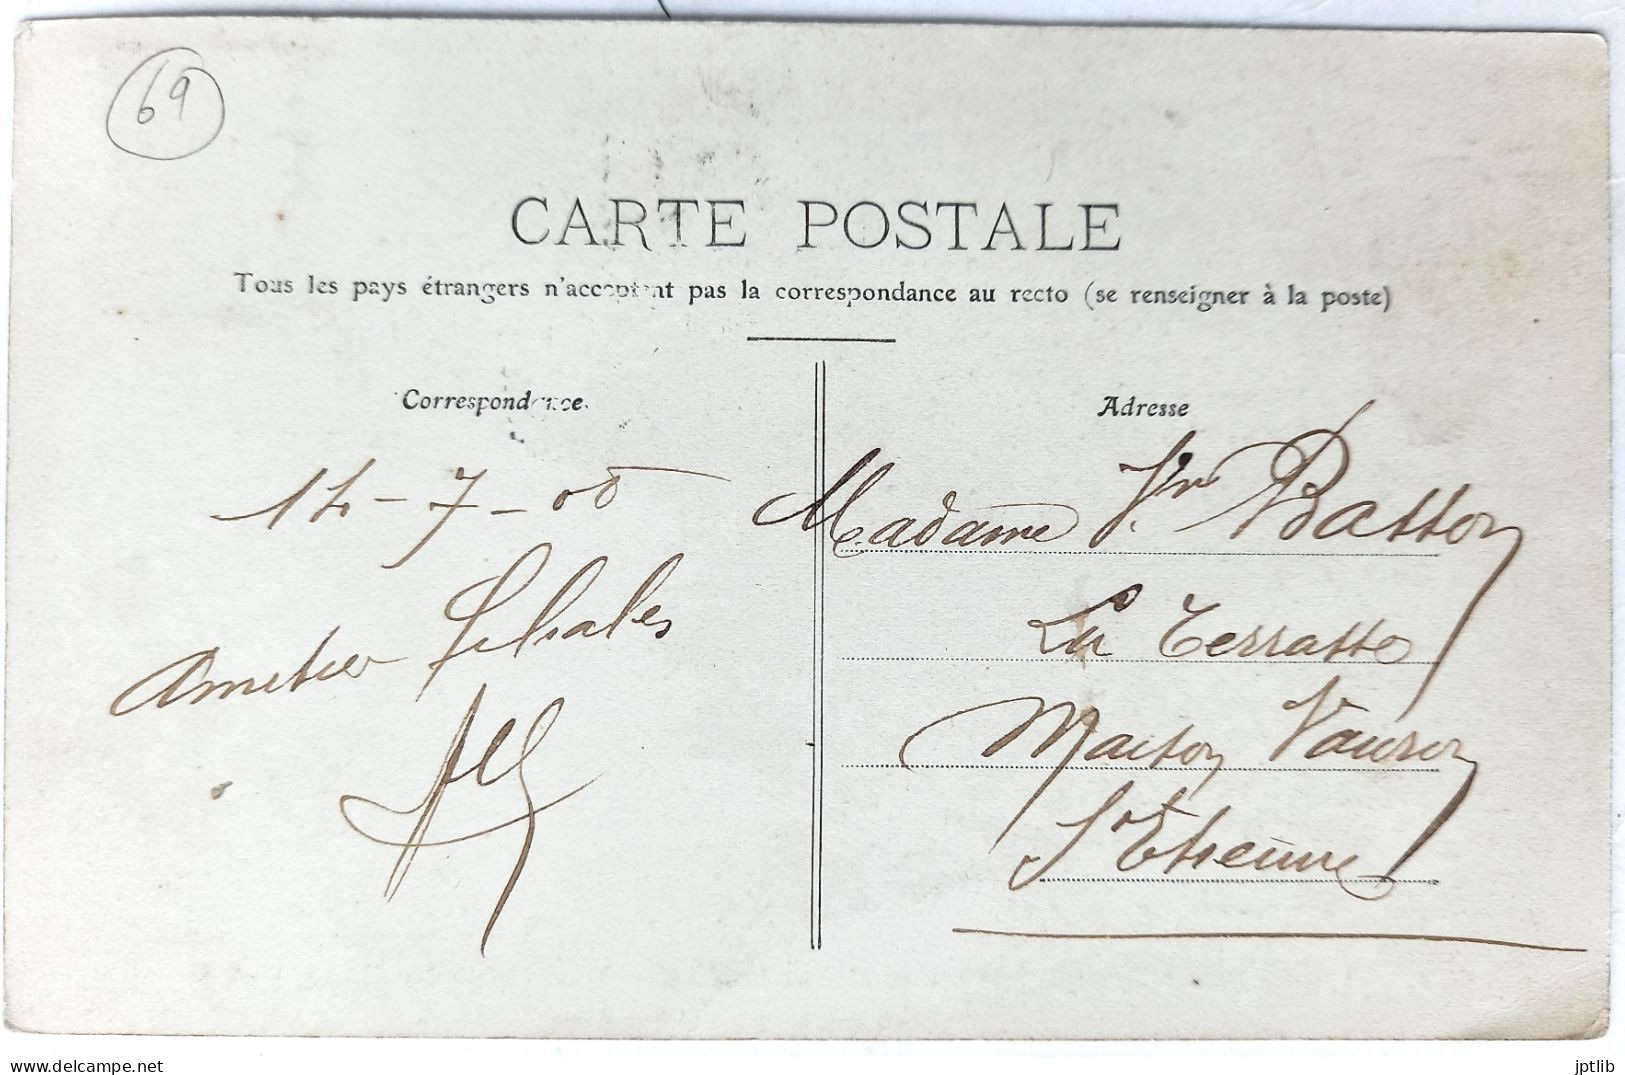 69
CARTE POSTALE
Tous les pays étrangers n'acceptent pas la correspondance au recto (se renseigner à la poste)
Correspondance
14-7-06
Amitiés filiales
Adresse
Madame Vve Basson
La Terrasse
Maison Vauron
St Etienne
delcampe.net
jptlib